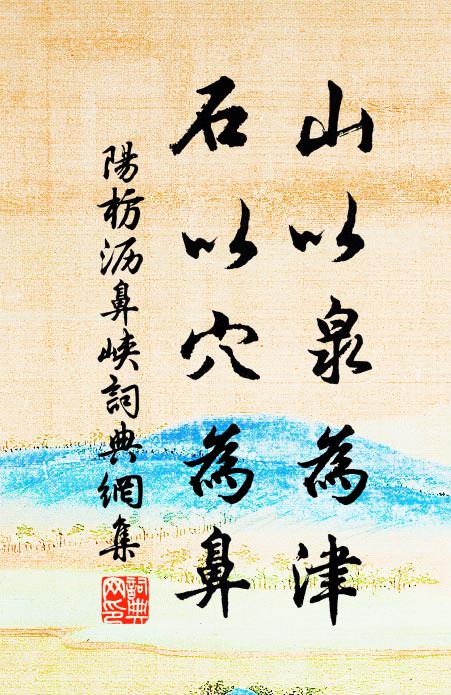 山以泉為津
石以穴為鼻
陽枥沥鼻峡詞典網集
詞典